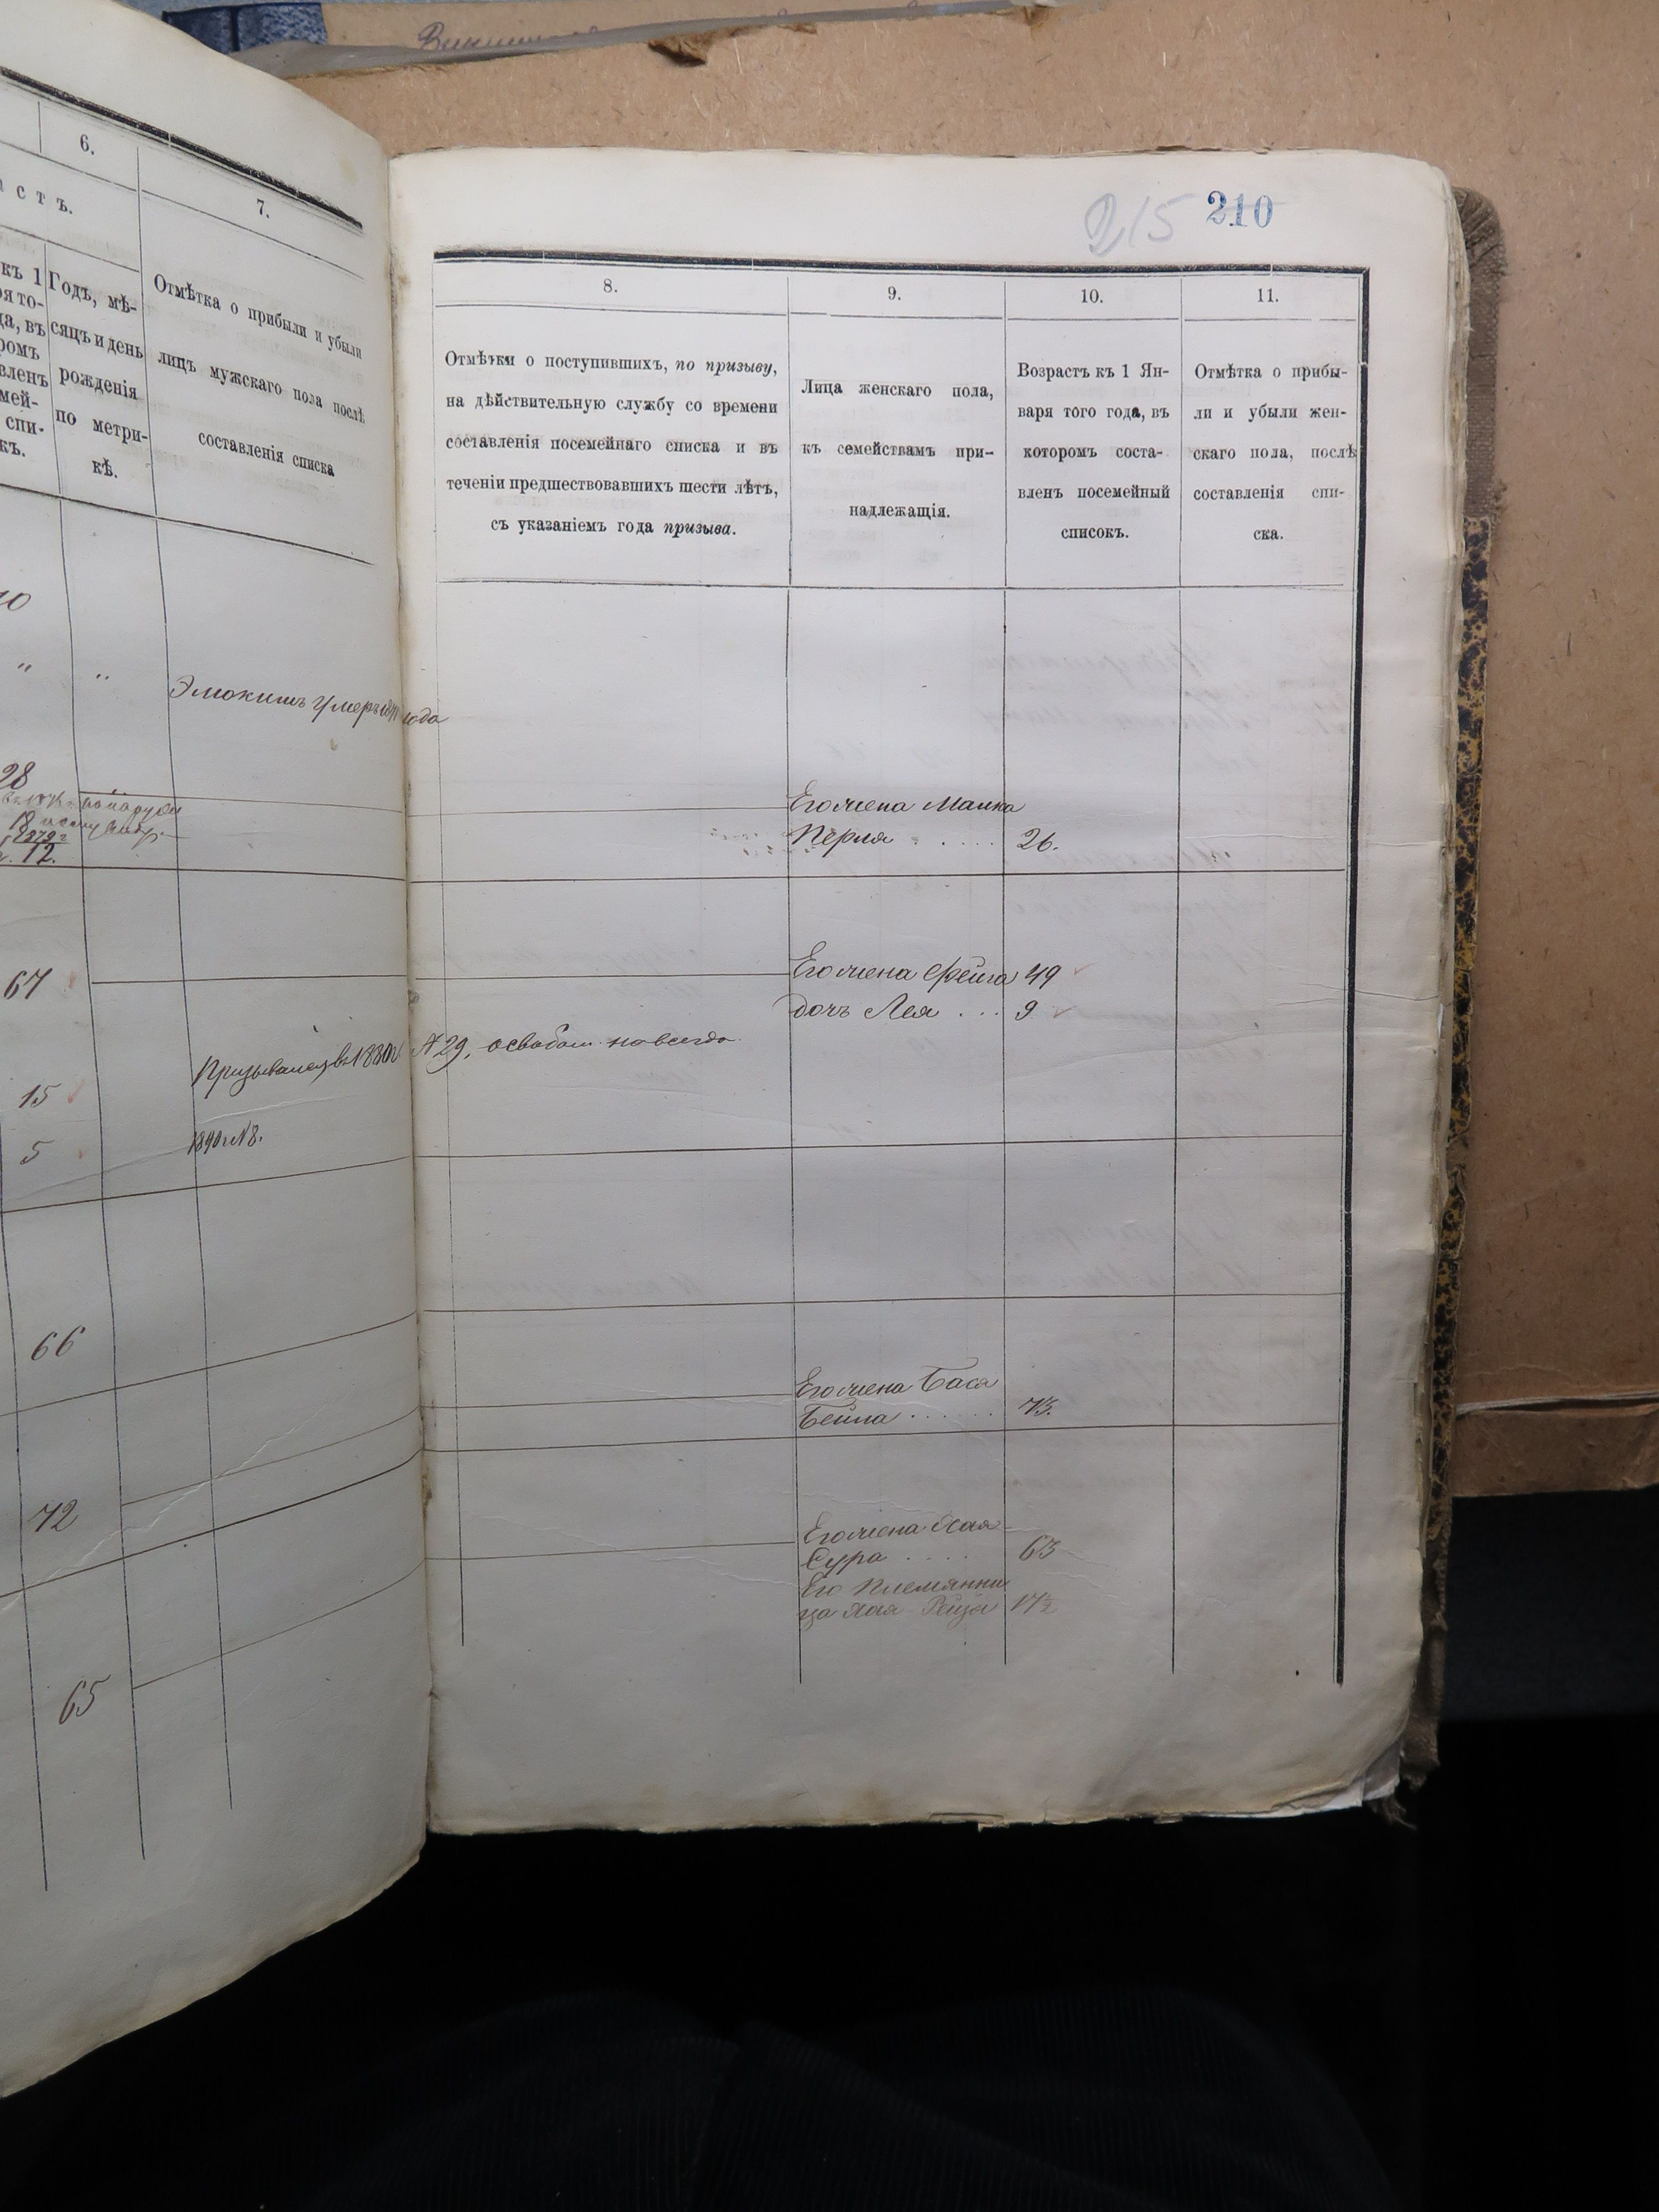 6.
7.
стъ.
къ 1
Годъ, мѣ-
сяцъ и день
рожденія
по метри-
кѣ.
Отмѣтка о прибыли и убыли
лицъ мужскаго пола послѣ
составленія списка
10
" "
умеръ года
28
12.
67
Призывался въ 1880 г № 29, освобож. навсегда
15
5 1890 г № 8.
66
72
65
215 210
8.
9.
10.
11.
Отмѣтки о поступившихъ, по призыву,
на дѣйствительную службу со времени
составленія посемейнаго списка и въ
теченіи предшествовавшихъ шести лѣтъ,
съ указаніемъ года призыва.
Лица женскаго пола,
къ семействамъ при-
надлежащія.
Возрастъ къ 1 Ян-
варя того года, въ
которомъ соста-
вленъ посемейный
списокъ.
Отмѣтка о прибы-
ли и убыли жен-
скаго пола, послѣ
составленія спи-
ска.
Его жена Малка
Перля . .... 26.
Его жена Фейга 49
дочь Лея ... 9
Его жена Бася
Бейла ...... 73.
Его жена Хая
Сура .... 63
Его Племянни
ца Хая Рейза 17½